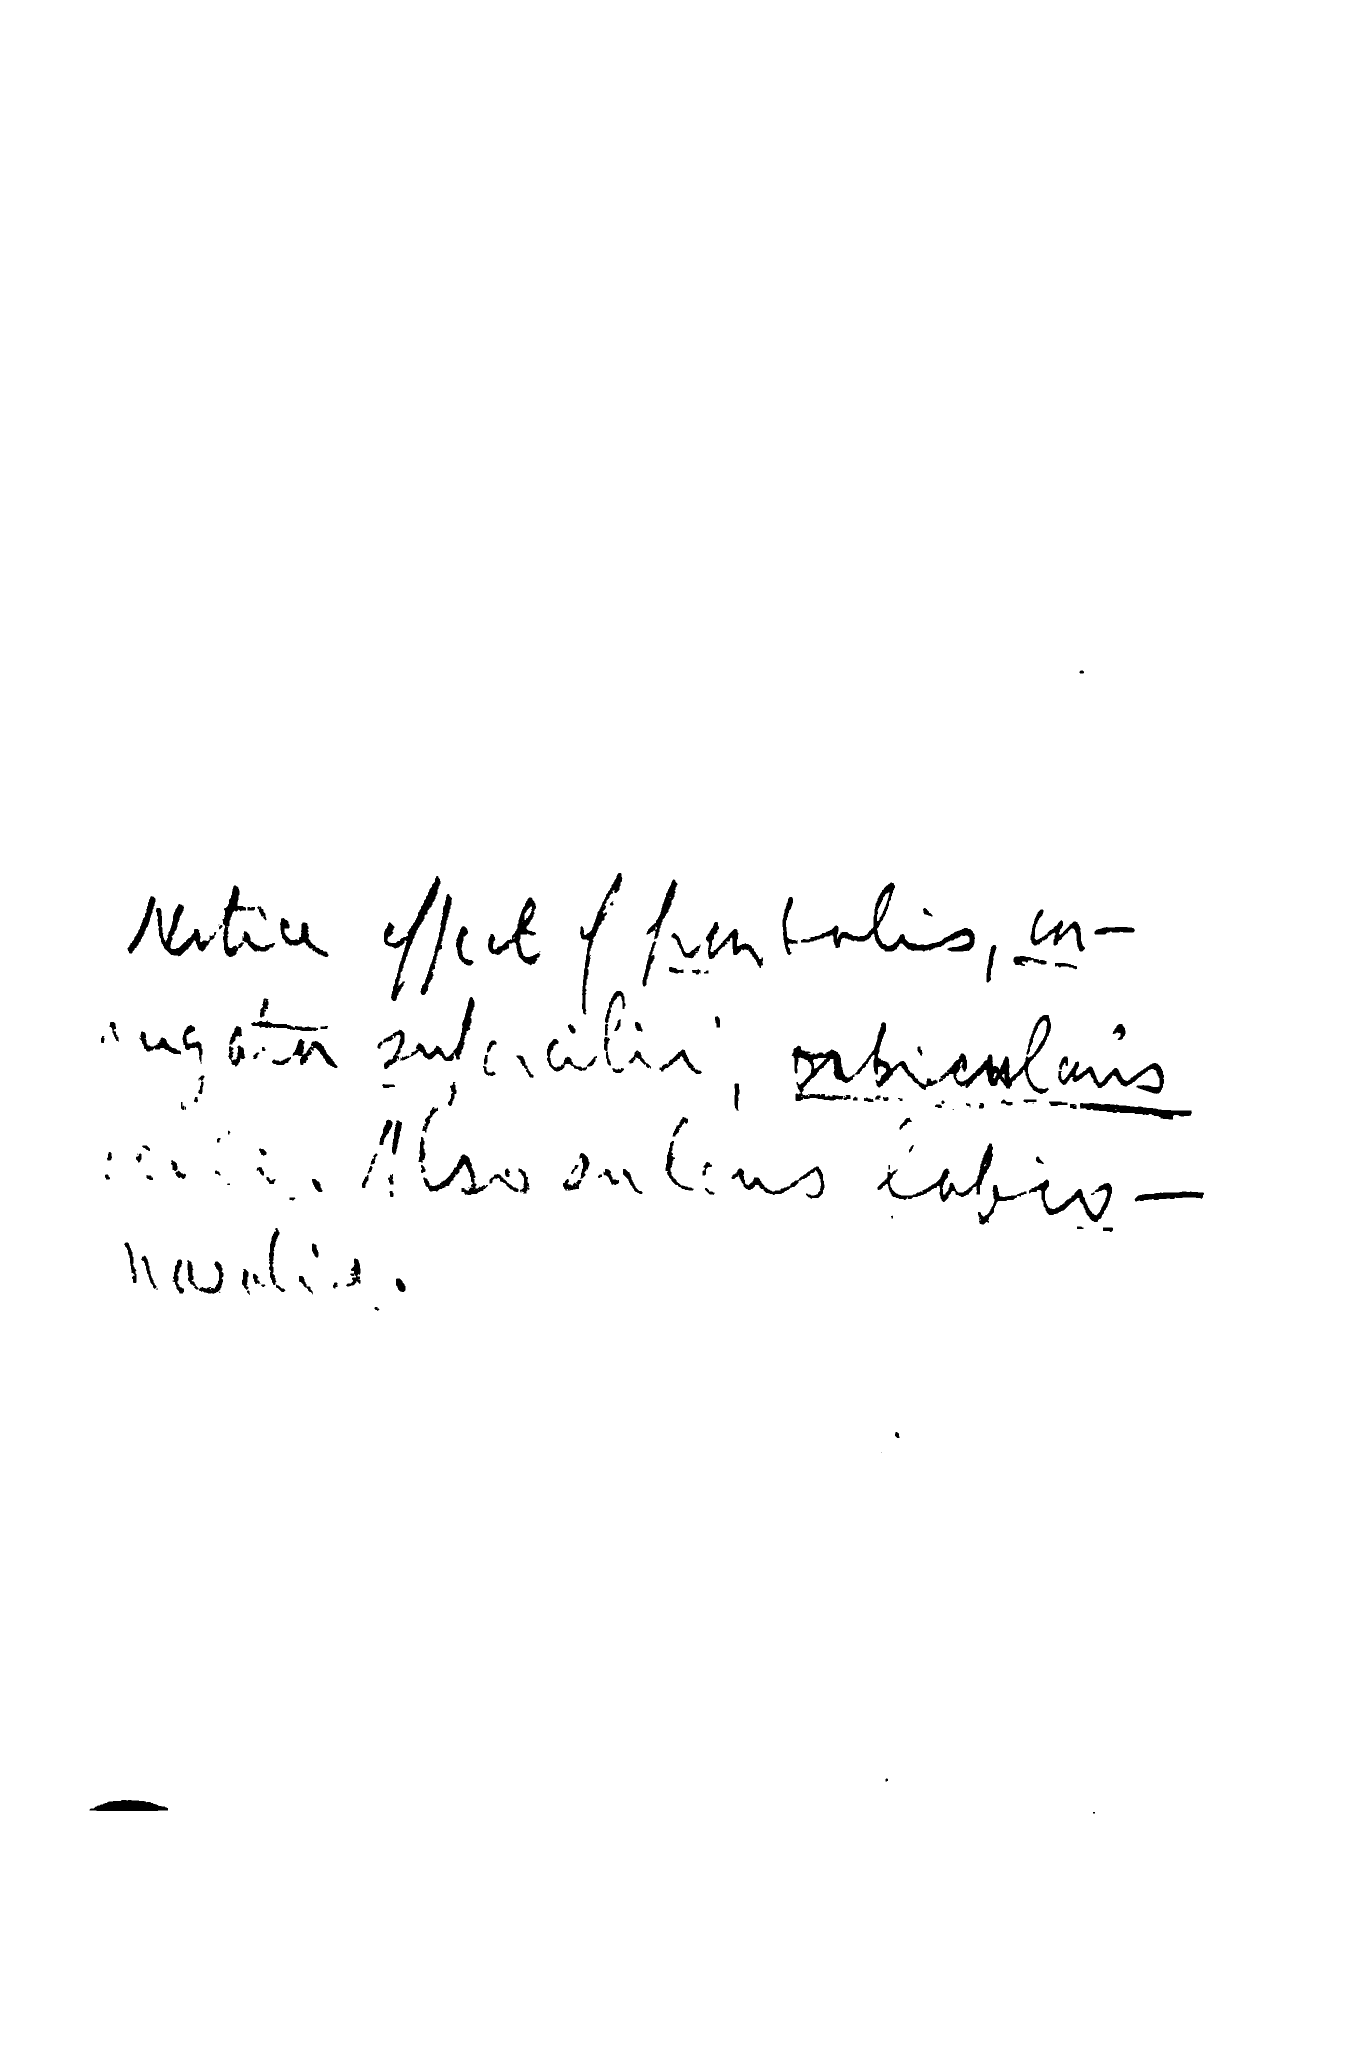 Notice effect of frontalis, cor-
rugator supercilii, orbicularis
oculi. Also sulcus labio-
nasalis.